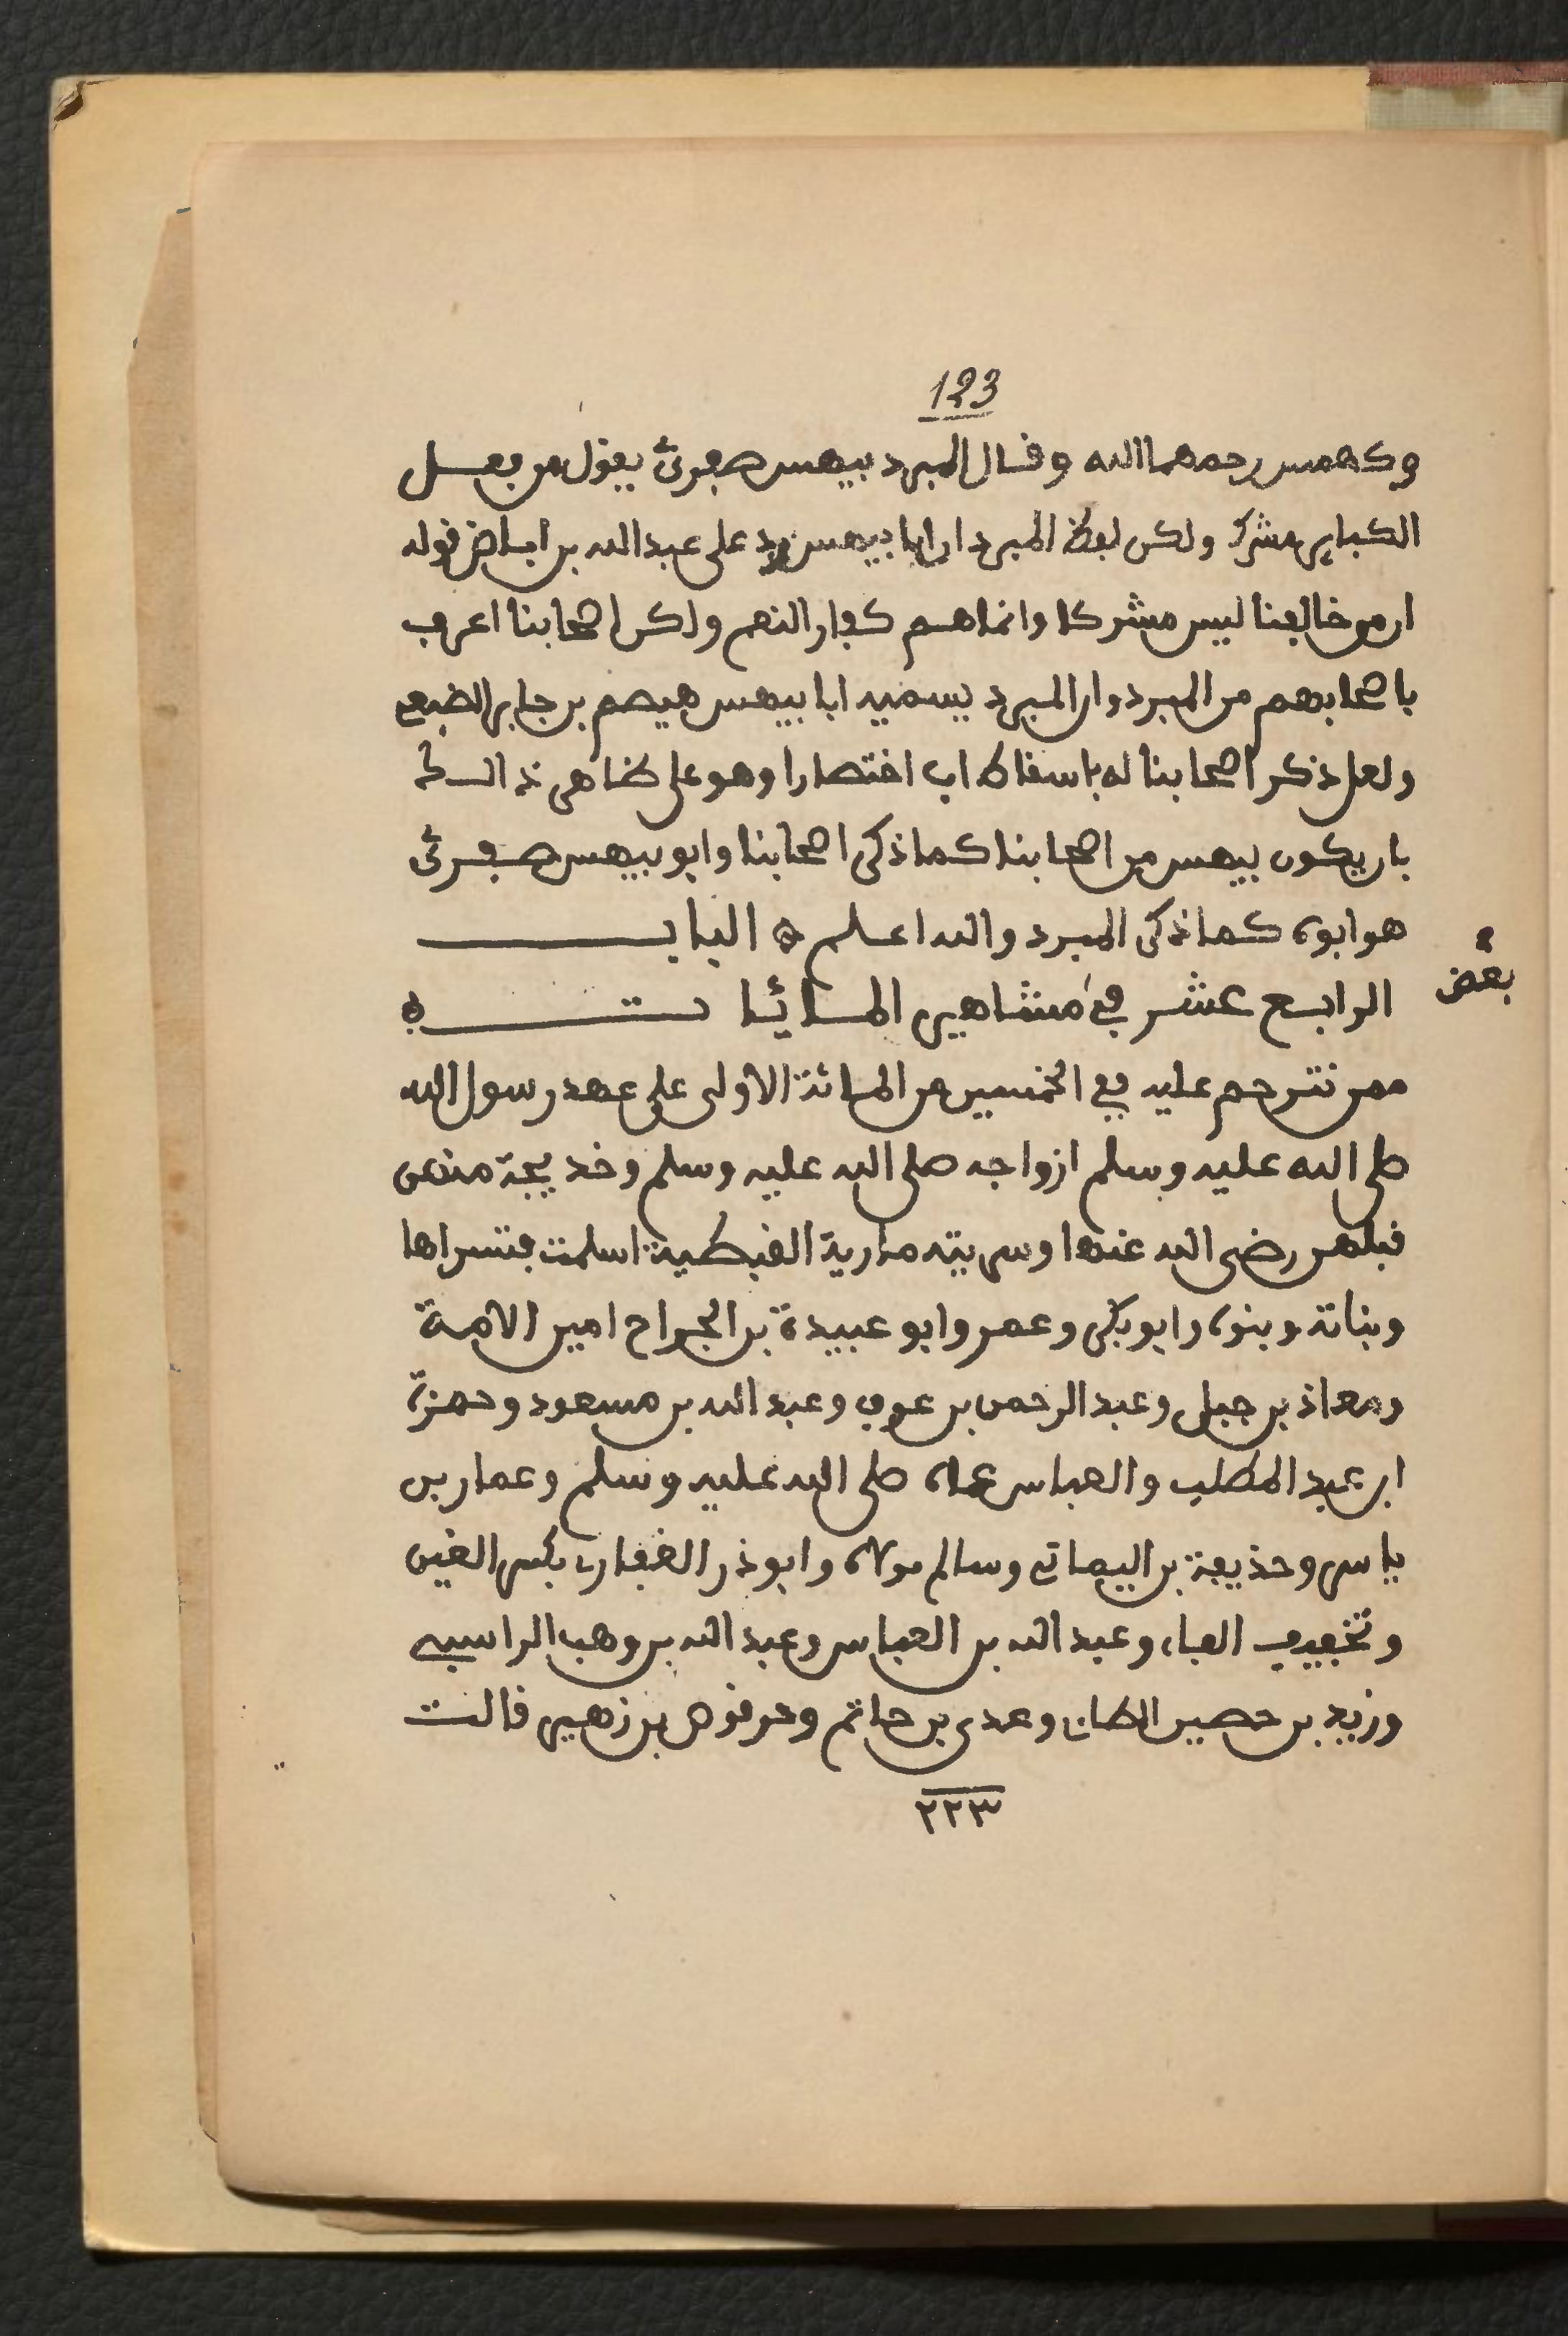 123
وكهمس رحمهما الله وقال المبرد بيهس صفرىّ يقول من فعل
الكباير مشرك ولكن لفظ المبرد ان ابا بيهس يرد على عبد الله بن اباض قوله
ان من خالفنا ليس مشركا وانما هم كفار النعم ولكن اصحابنا اعرف
باصحابهم من المبرد وان المبرد يسميه ابا بيهس هيصم بن جابر الضبعي
ولعل ذكر اصحابنا له باسقاط اب اختصارا وهو على
بان يكون بيهس من اصحابنا كما ذكر اصحابنا وابو بيهس صفرىّ
هو ابوه كما ذكر المبرد والله اعلم ۞ البابــ
الرابع عشر في مشاهير المــائـا تــ ه
بعض
ممن نترحم عليه في الخمسين من المائة الاولى على عهد رسول الله
صلى الله عليه وسلم ازواجه صلى الله عليه وسلم وخديجة منهن
قبلهن رضى الله عنها وسريته مارية القبطية اسلمت فتسراها
وبناته وبنوه وابو بكر وعمر وابو عبيدة بن الجراح امين الامة
ومعاذ بن جبل وعبد الرحمن بن عوف وعبد الله بن مسعود وحمزة
ابن عبد المطلب والعباس عماه صلى الله عليه وسلم وعمار بن
ياسر وحذيفة بن اليماني وسالم مولاه وابو ذر الغفارى بكسر الغين
وتخفيف الفاء وعبد الله بن العباس وعبد الله بن وهب الراسبي
وزيد بن حصين الطاى وعدى بن حاتم وحرقوص بن زهير قالت
٢٢٣